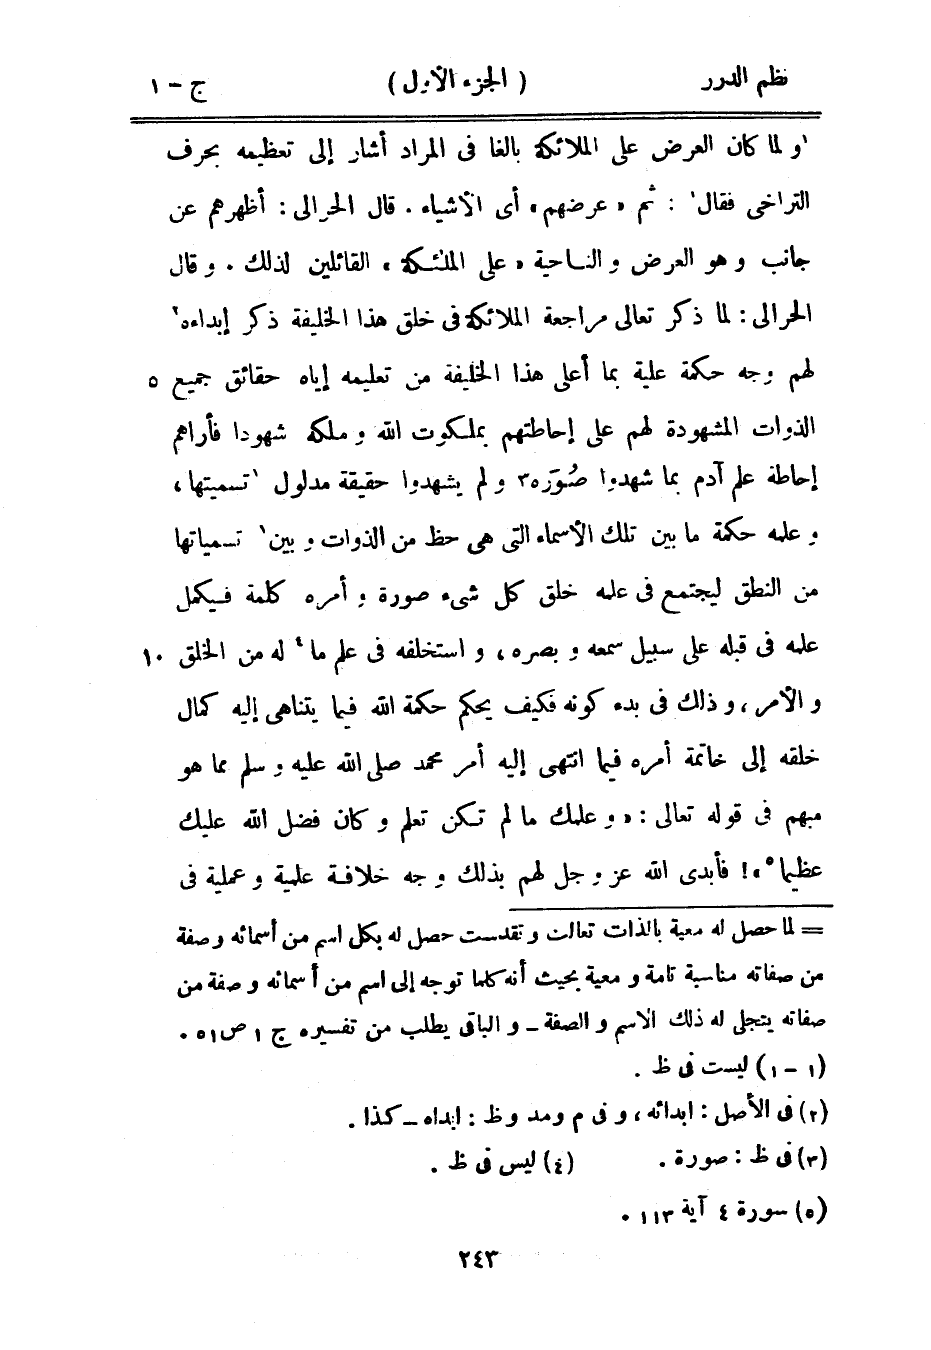 نظم الدرر ( الجزء الأول ) ج – ١
١و لما كان العرض على الملائكة بالغا فى المراد أشار إلى تعظيمه بحرف
التراخى فقال١ : ثم « عرضهم » أى الأشياء . قال الحرالى : أظهرهم عن
جانب و هو العرض و الناحية « على الملٰئكة » القائلين لذلك . و قال
الحرالى : لما ذكر تعالى مراجعة الملائكة فى خلق هذا الخليفة ذكر إبداءه٢
لهم وجه حكمة علية بما أعلى هذا الخليفة من تعليمه إياه حقائق جميع ٥
الذوات المشهودة لهم على إحاطتهم بملكوت الله و ملكه شهودا فأراهم
إحاطة علم آدم بما شهدوا صُوَره٣ و لم يشهدوا حقيقة مدلول ١تسميتها ،
و علمه حكمة ما بين تلك الأسماء التى هى حظ من الذوات و بين١ تسمياتها
من النطق ليجتمع فى علمه خلق كل شىء صورة و أمره كلمة فيكمل
علمه فى قبله على سبيل سمعه و بصره ، و استخلفه فى علم ما٤ له من الخلق ١٠
و الأمر ، و ذلك فى بدء كونه فكيف يحكم حكمة الله فيما يتناهى إليه كمال
خلقه إلى خاتمة أمره فيما انتهى إليه أمر محمد صلى الله عليه و سلم مما هو
مبهم فى قوله تعالى : « و علمك ما لم تكن تعلم و كان فضل الله عليك
عظيما٥ » ! فأبدى الله عز و جل لهم بذلك وجه خلافة علمية و عملية فى
= لما حصل له معية بالذات تعالت و تقدست حصل له بكل اسم من أسمائه و صفة
من صفاته مناسبة تامة و معية بحيث أنه كلما توجه إلى اسم من أسمائه و صفة من
صفاته يتجلى له ذلك الاسم و الصفة – و الباقى يطلب من تفسيره ج ١ ص ٥١ .
(١ – ١) ليست فى ظ .
(٢) فى الأصل : ابدائه ، و فى م ومد وظ : ابداه – كذا .
(٣) فى ظ : صورة . (٤) ليس فى ظ .
(٥) سورة ٤ آية ١١٣ .
٢٤٣